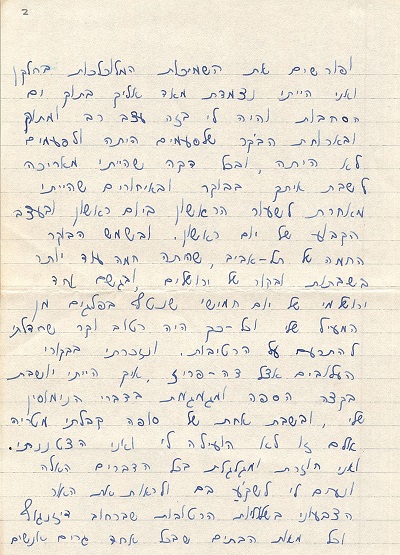 2
ופורשים את השמיכות המלוכלכות בחלקן
ואני הייתי נצמדת מאד אליך בתוך ים
הסחבות והיה לי בזה עצב רב ומתוק
ובארוחת הבקר שלפעמים היתה ולפעמים
לא היתה, ובכל דקה שהייתי מאריכה
לשבת איתך בבוקר ובאיחורים שהייתי
מאחרת לשעור הראשון ביום ראשון ובעצב
הקבוע של יום ראשון. ובשמש הבוקר
החמה של תל-אביב, שהיתה חמה עוד יותר
בשבתות ובקור של ירושלים, ובגשם אחד
ירושלמי של יום חמישי שנטף בפלגים מן
המעיל שלי וכל-כך היה רטוב וקר שחדלתי
להתרעם על הרטיבות. ונזכרתי בבקורי
העלובים אצל דה-פריז, איך הייתי יושבת
בקצה הספה ומגמגמת בדברי הנימוסין
שלי, ובשבת אחת של סופה קבלתי מטריה
אולם זו לא הועילה לי ואני הצטננתי.
ואני חוזרת ומגלגלת בכל הדברים האלה
ונעים לי לשקע בם ולראות את האור
הצבעוני בשלוליות הרטובות שברחוב דיזנגוף
וכל מאות הבתים שבכל אחד גרים אנשים